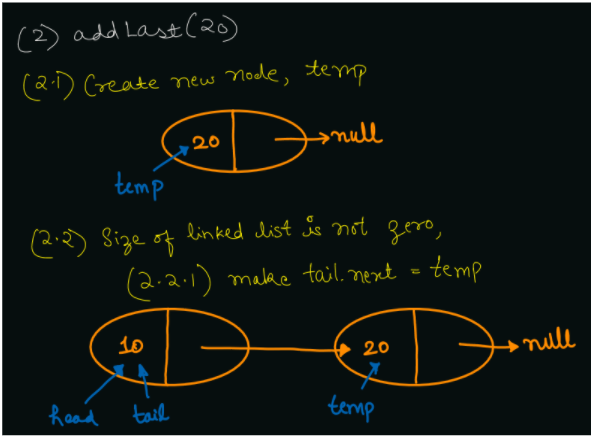 (2) addLast(20)
(2.1) Create new node, temp
20 null
temp
(2.2) Size of linked list is not zero,
(2.2.1) make tail.next = temp
10 20 null
head tail temp